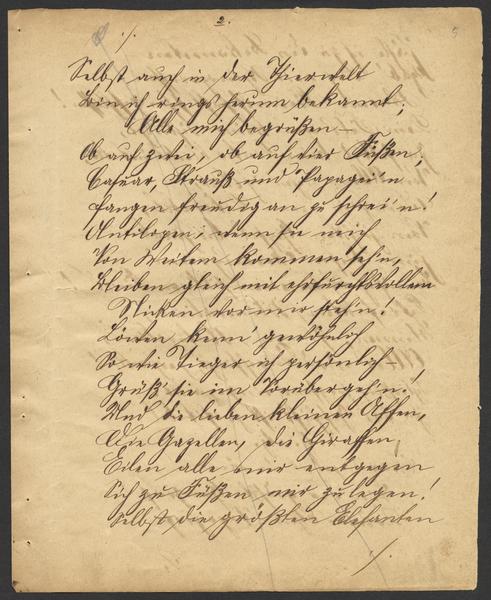 2.
5
./.
Selbst auch in der Thierwelt
Bin ich rings herum bekannt;
Alle mich begrüßen –
Ob auf zwei, ob auf vier Füßen,
Casuar, Strauß und Papagei'n
fangen freudig an zu schrei'n!
Antilopen, wenn sie mich
Von Weitem kommen seh'n,
Bleiben gleich mit ehrfurchtsvollem
Nicken vor mir steh'n!
Löwen kenn' gewöhnlich
So wie Tieger ich persönlich –
Grüß' sie im Vorübergeh'n!
Und die lieben kleinen Affen,
Die Gazellen, die Giraffen,
Eilen alle mir entgegen
Sich zu Füßen mir zu legen!
Selbst die größten Elefanten
./.